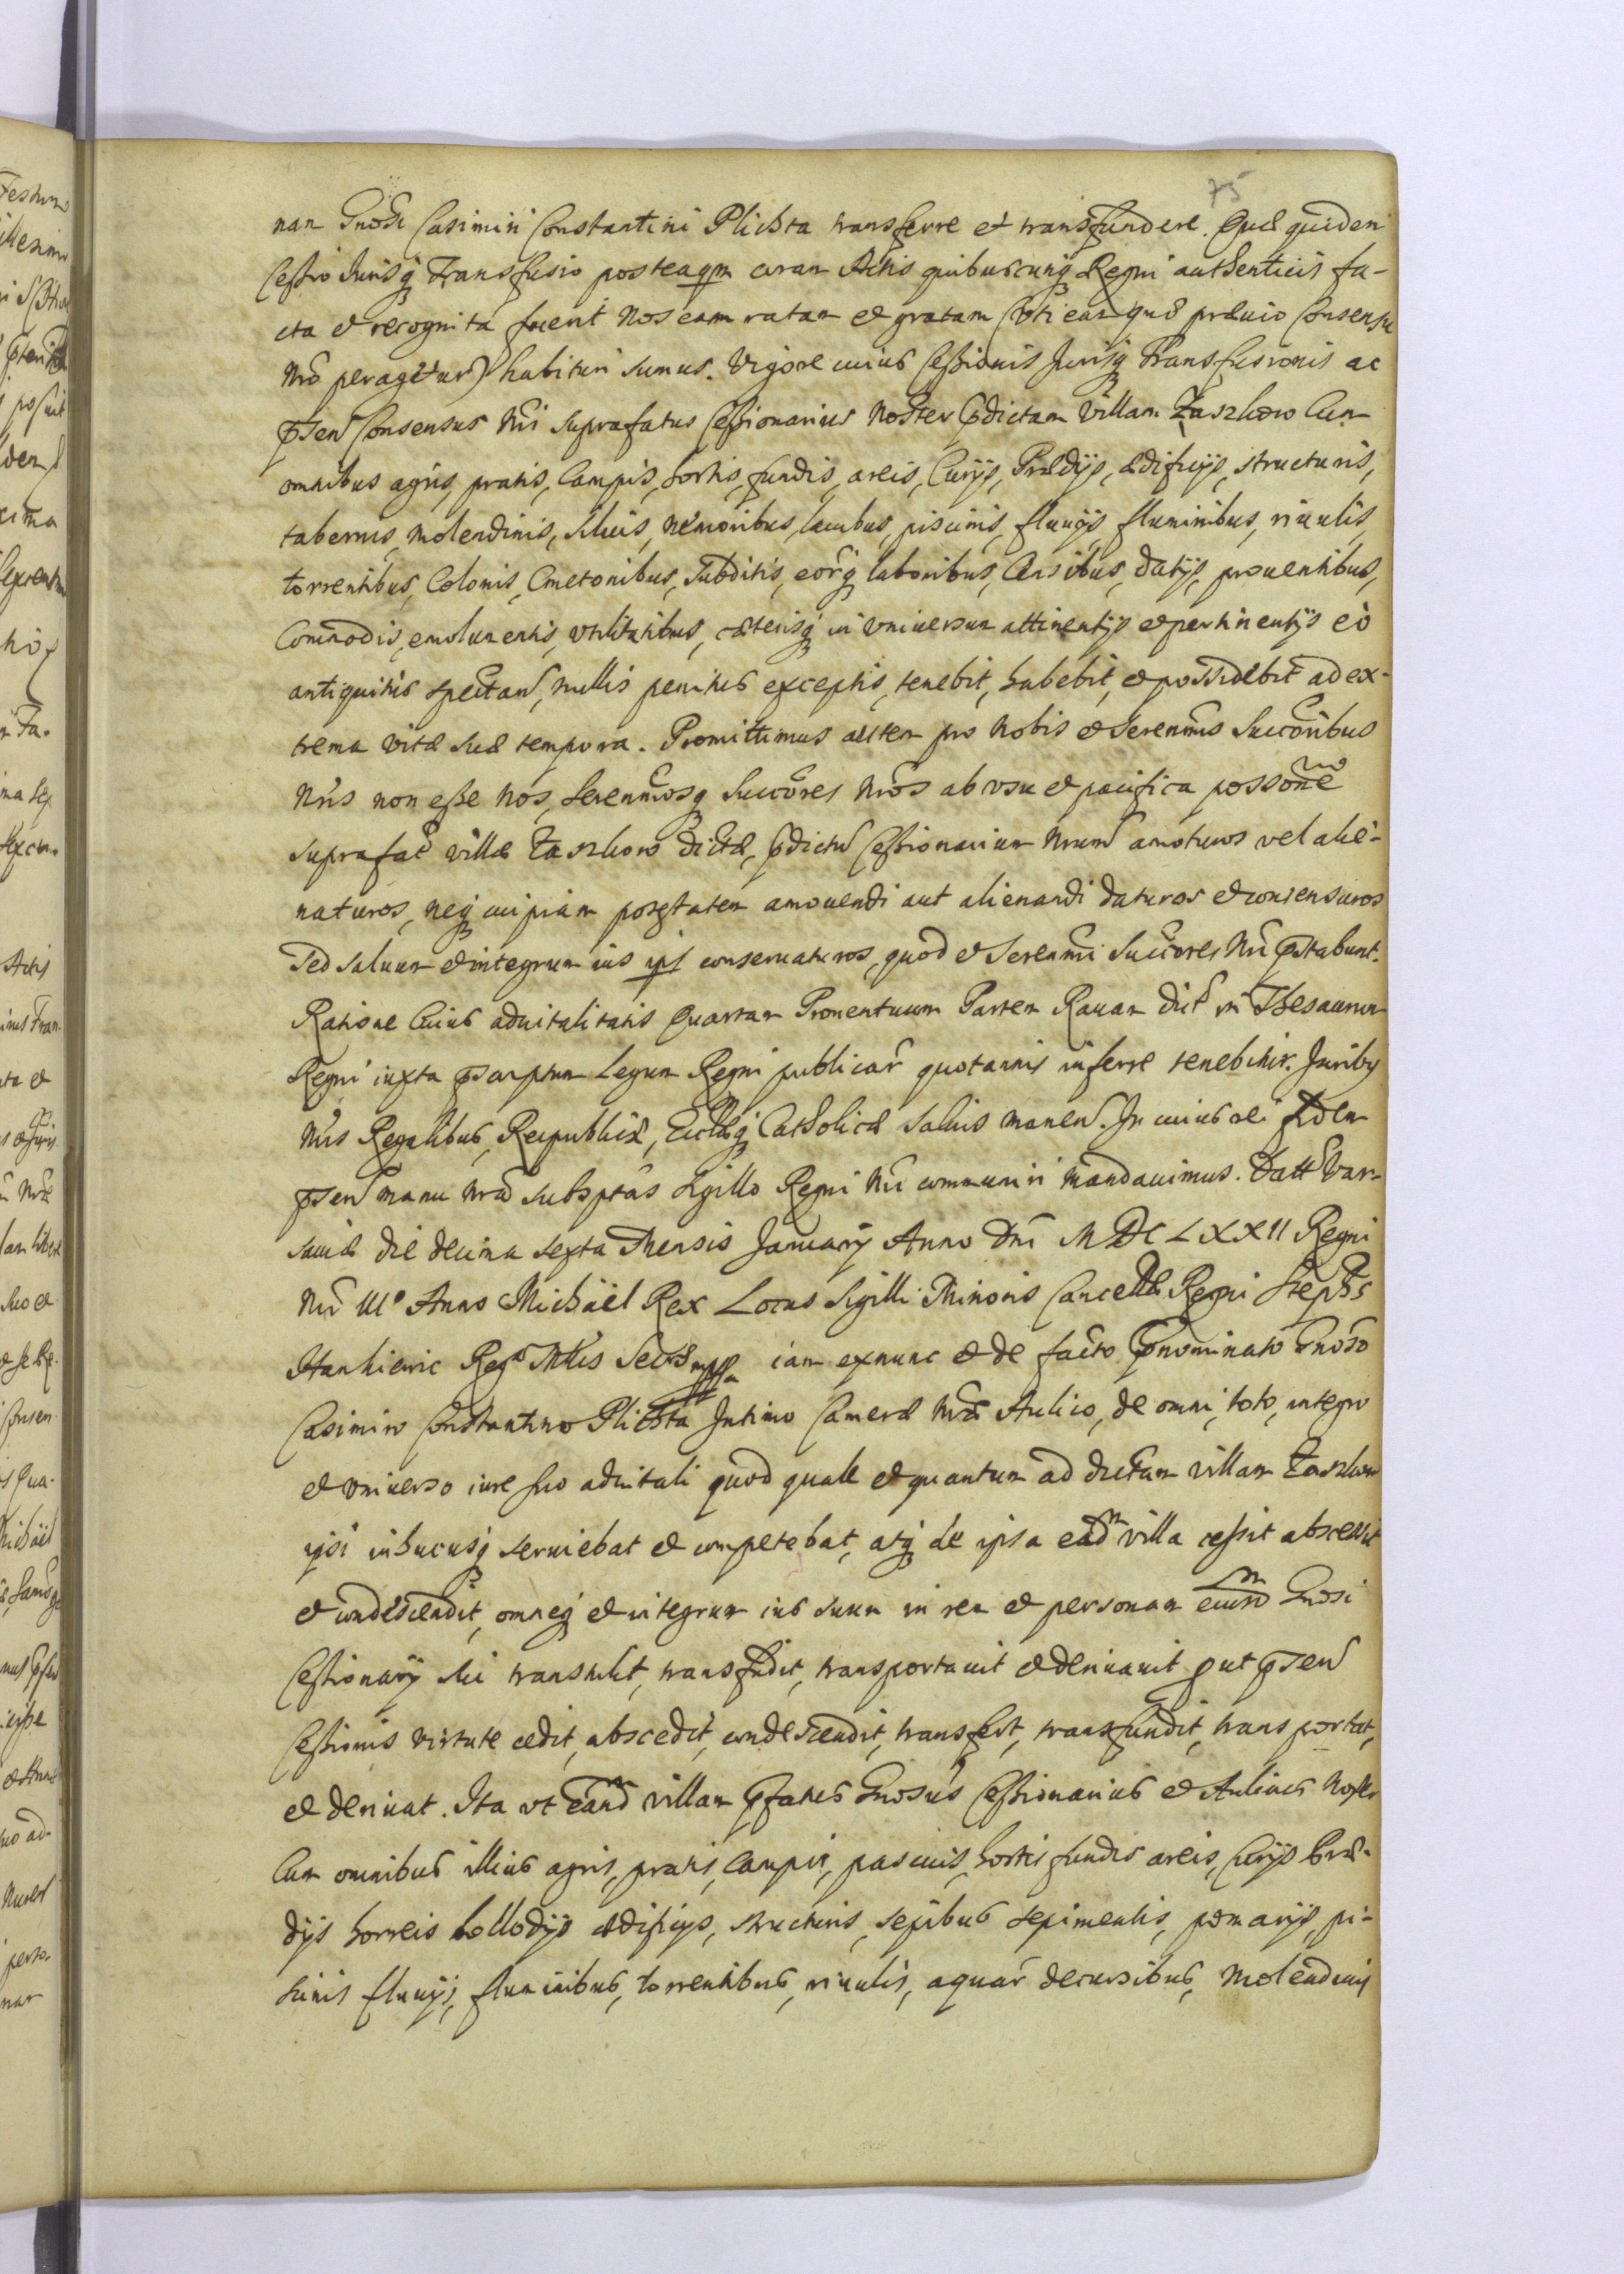 75
nan Gnosi Casimiri Constantini Plichta transferre et transfundere. Quæ quidem
Cessio Jurisq Transfusio posteaqm coram Actis quibuscunq Regni authenticis fa-
cta et recognita fuerit Nos eam ratam et gratam (uti eam quæ prævio Consensu
Nro peragetur) habituri sumus. Vigore cuius Cessionis Jurisq Transfusionis ac
pnsen Consensus Nri suprafatus Cessionarius Noster pdictam Villam Zaszkow Cum
omnibus agris, pratis, Campis, hortis, fundis, areis, Curijs, Prædijs, ædificijs, structuris,
tabernis, molendinis, siluis, nemoribus, lacubus, piscinis, fluuijs, fluminibus, riuulis,
torrentibus, Colonis, Cmetonibus, subditis, eorq laboribus, Censibus, datijs, prouentibus,
Commodis, emolumentis, vtilitatibus, cæterisq in vniuersum attinentijs et pertinentijs eò
antiquitùs spectan, nullis penitus exceptis, tenebit, habebit, et possidebit ad ex-
trema vitæ suæ tempora. Promittimus autem pro Nobis et Serenmis Succoribus
Nris non esse Nos, Serenmosq Succores Nros ab vsu et pacifica possone
suprafat villæ Zaszkow dictæ, pdictu Cessionarium Nrum amoturos vel alie-
naturos, neq cuipiam potestatem amouendi aut alienandi daturos et consensuros
Sed saluum et integrum ius ipsi conseruaturos, quod et Serenmi Succores Nri pstabunt.
Ratione Cuius aduitalitatis Quartam Prouentuum Partem Rauam dict in Thesaurum
Regni iuxta pscriptum Legum Regni publicar quotannis inferre tenebitur. Juribq
Nris Regalibus, Reipublicæ, Ecclæq Catholicæ saluis manen. In cuius rei fidem
pnsen manu Nra subsptas Sigillo Regni Nri communiri mandauimus. Datt Var-
sauiæ die decima sexta Mensis January Anno Dni MDCLXXII Regni
Nri IIIº Anno Michaël Rex Locus Sigilli Minoris Cancellæ Regni Stephs
Hankiewic Regæ Mttis Secrs mpp iam exnunc et de facto pnominato Gnoso
Casimiro Constantino Plichta Intimo Cameræ Nræ Aulico, de omni, toto, integro
et vniuerso iure suo aduitali quod quale et quantum ad dictam villam Zaszkow
ipsi inhucusq seruiebat et competebat, atq de ipsa eadm villa cessit abscessit
et condescendit, omneq et integrum ius suum in rem et personam eiusdm Gnosi
Cessionarij sui transtulit, transfudit, transportauit et deriuauit put pnsen
Cessionis virtute cedit, abscedit, condescendit, transfert, transfundit, transportat,
et deriuat. Ita vt eand villam pfatus Gnosus Cessionarius et Aulicus Noster
Cum omnibus illius agris, pratis, campis, pascuis, hortis fundis areis, Curijs Præ-
dijs horreis bollodijs ædificijs, structuris, sepibus sepimentis, pomarijs, pi-
scinis fluuijs, fluminibus, torrentibus, riuulis, aquar decursibus, Molendinis